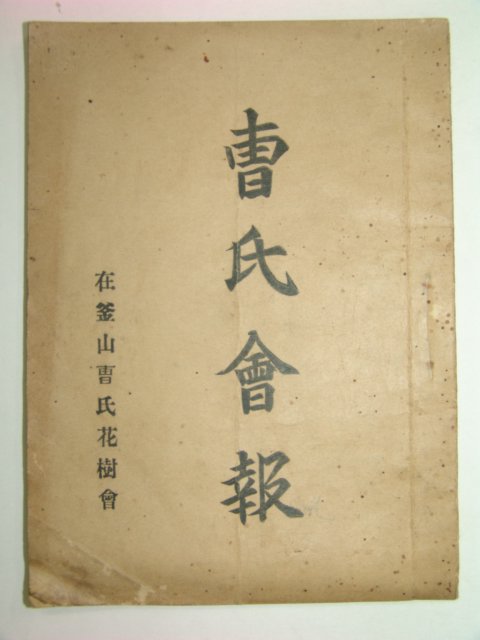 曺氏會報
在釜山曺氏花樹會